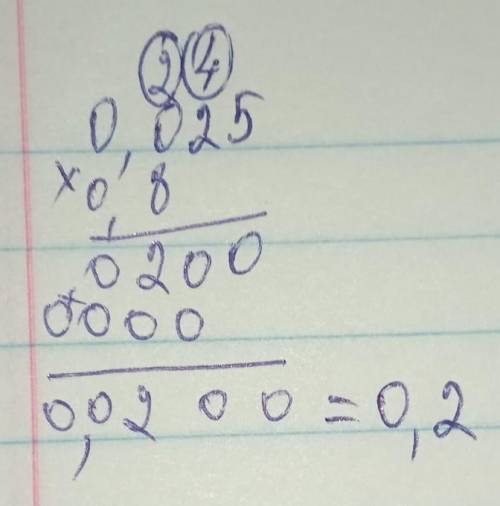 2 4
0,025
× 0,8
0200
+ 0000
0,0200 = 0,2